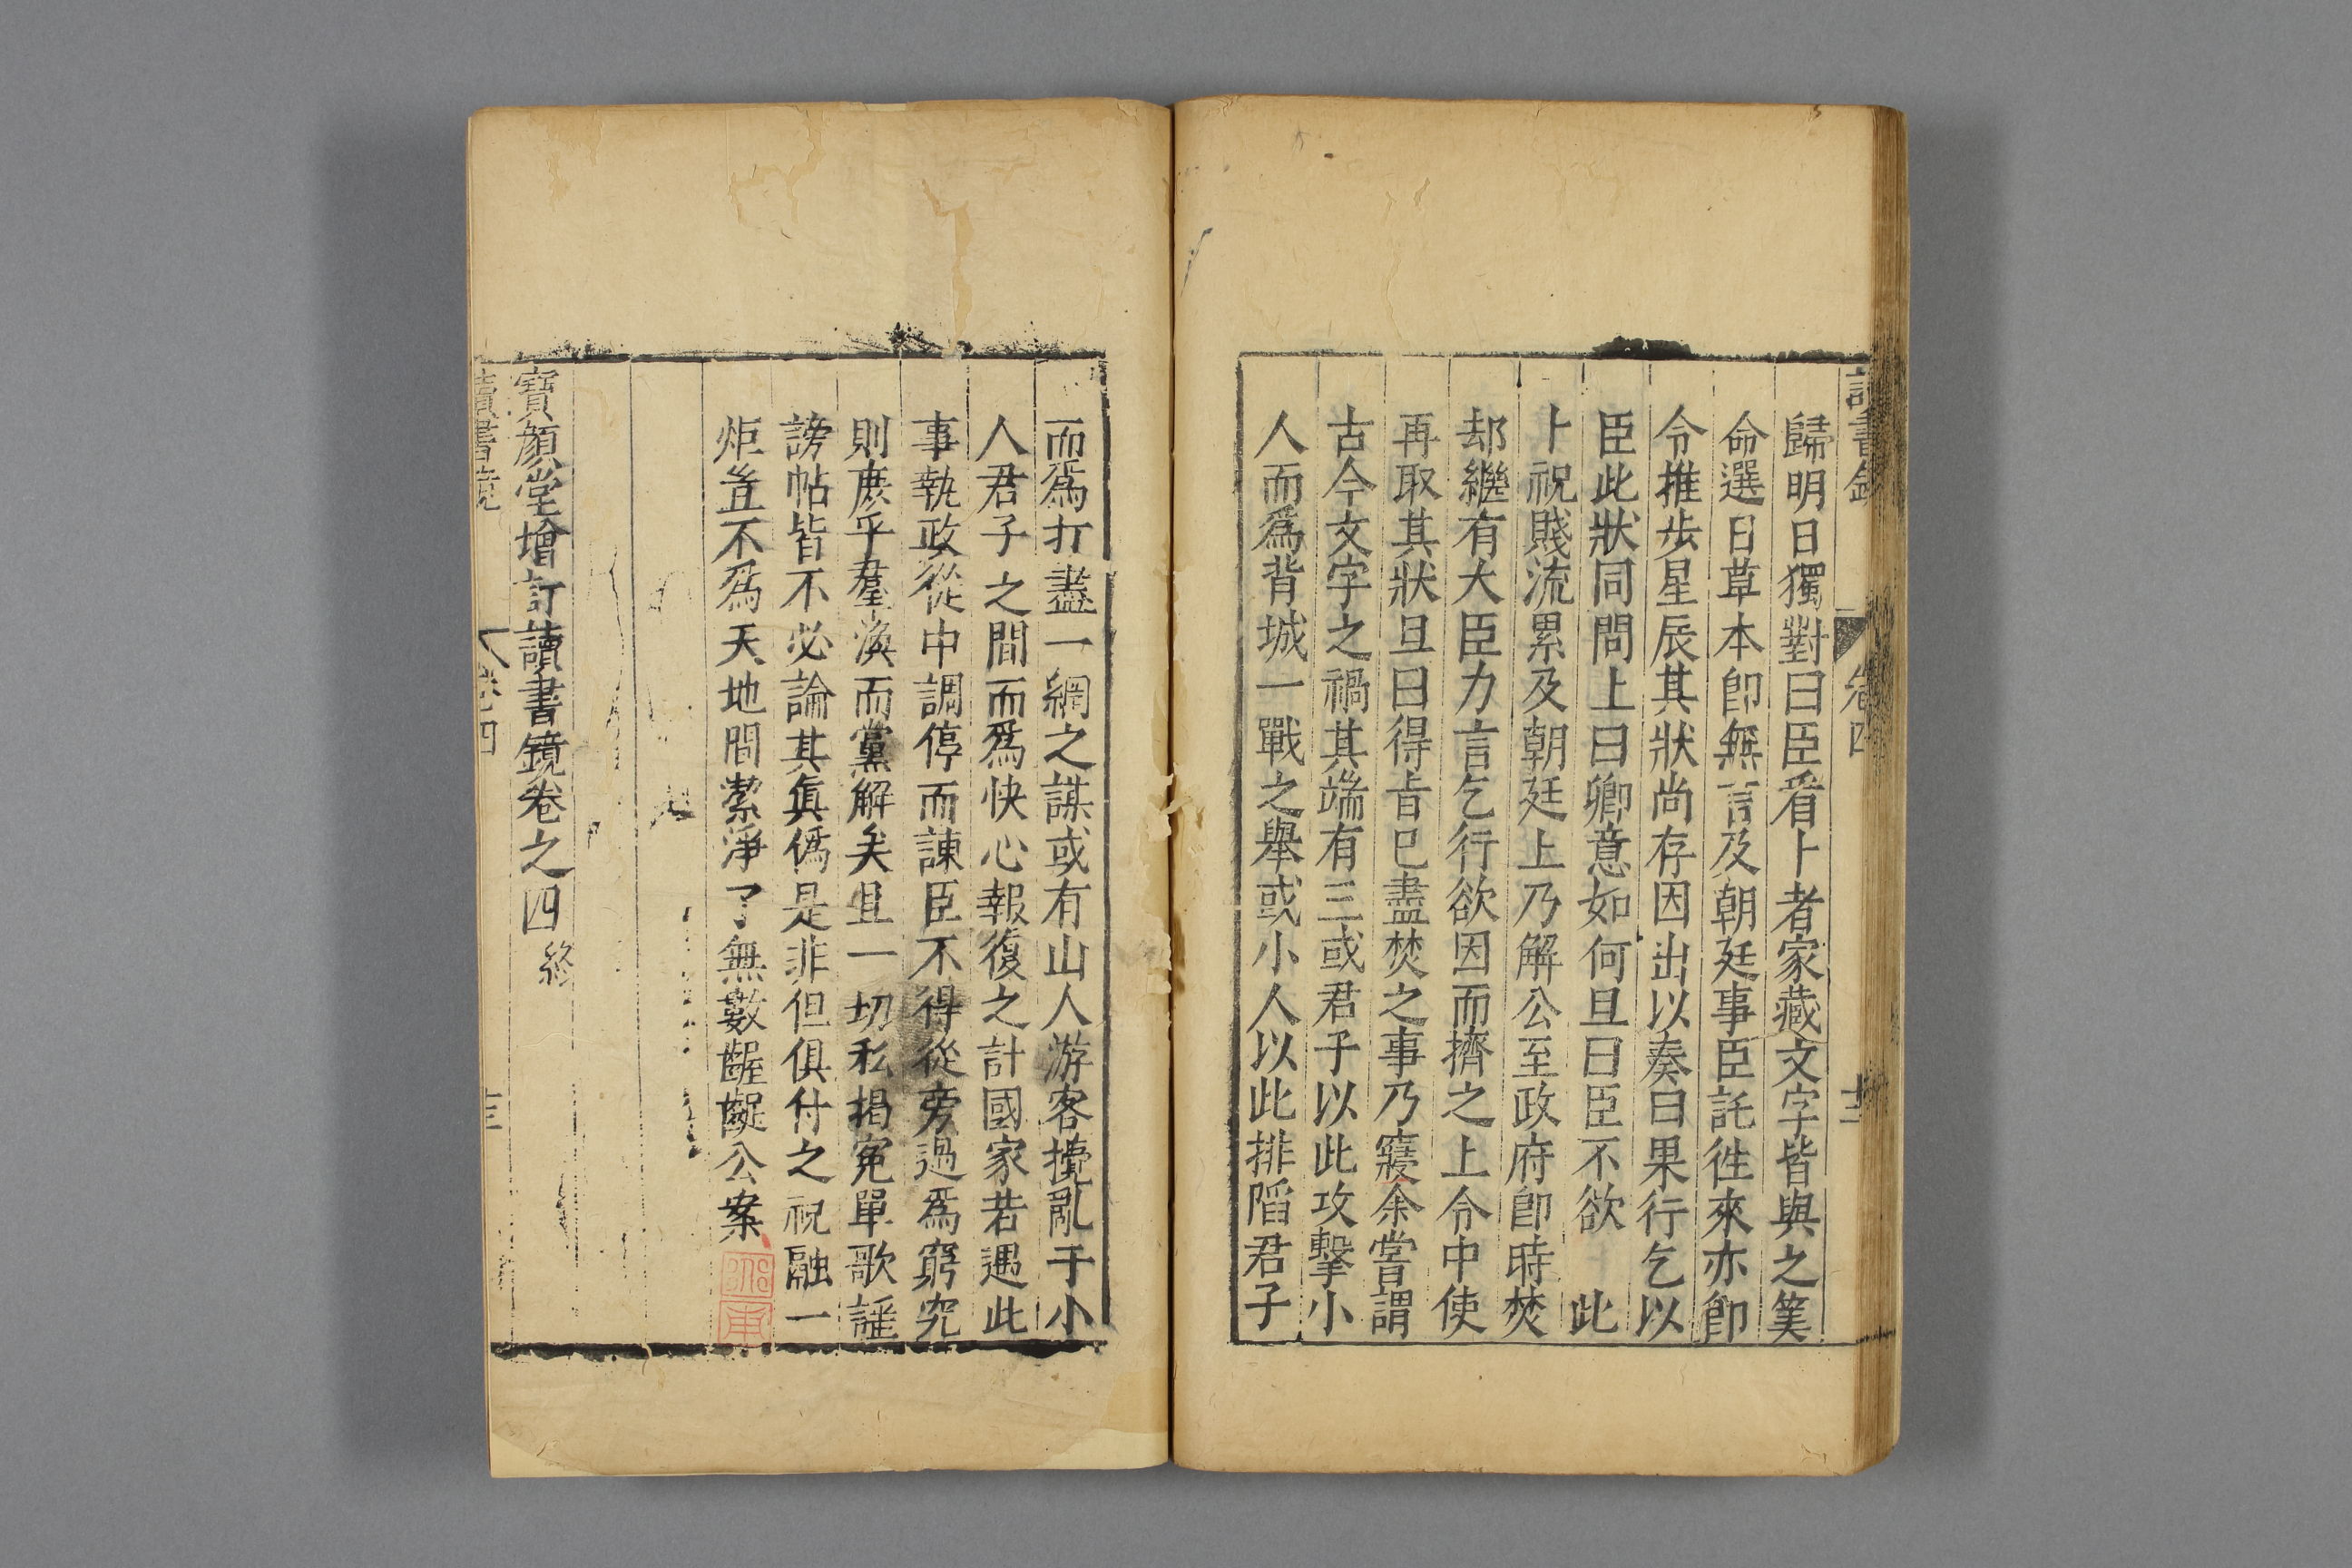 歸明日獨對曰臣看卜者家藏文字皆與之筭
命選日草本卽無言及朝廷事臣託徃來亦卽
令推步星辰其狀尚存因出以奏曰果行乞以
臣此狀同問上曰卿意如何旦曰臣不欲 此
卜祝賤流累及朝廷上乃解公至政府卽時焚
却繼有大臣力言乞行欲因而擠之上令中使
再取其狀旦曰得㫖已盡焚之事乃寢余嘗謂
古今文字之禍其端有三或君子以此攻擊小
人而爲背城一戰之舉或小人以此排陷君子
而爲打盡一網之謀或有山人游客攪亂于小
人君子之間而爲快心報復之計國家若遇此
事執政從中調停而諫臣不得從旁過爲窮究
則庶乎羣渙而黨解矣且一切私揭寃單歌謡
謗帖皆不必論其眞僞是非但俱付之祝融一
炬豈不爲天地間潔淨了無數齷齪公案
寶顏堂增訂讀書鏡卷之四 終
讀書鏡 卷四 十三